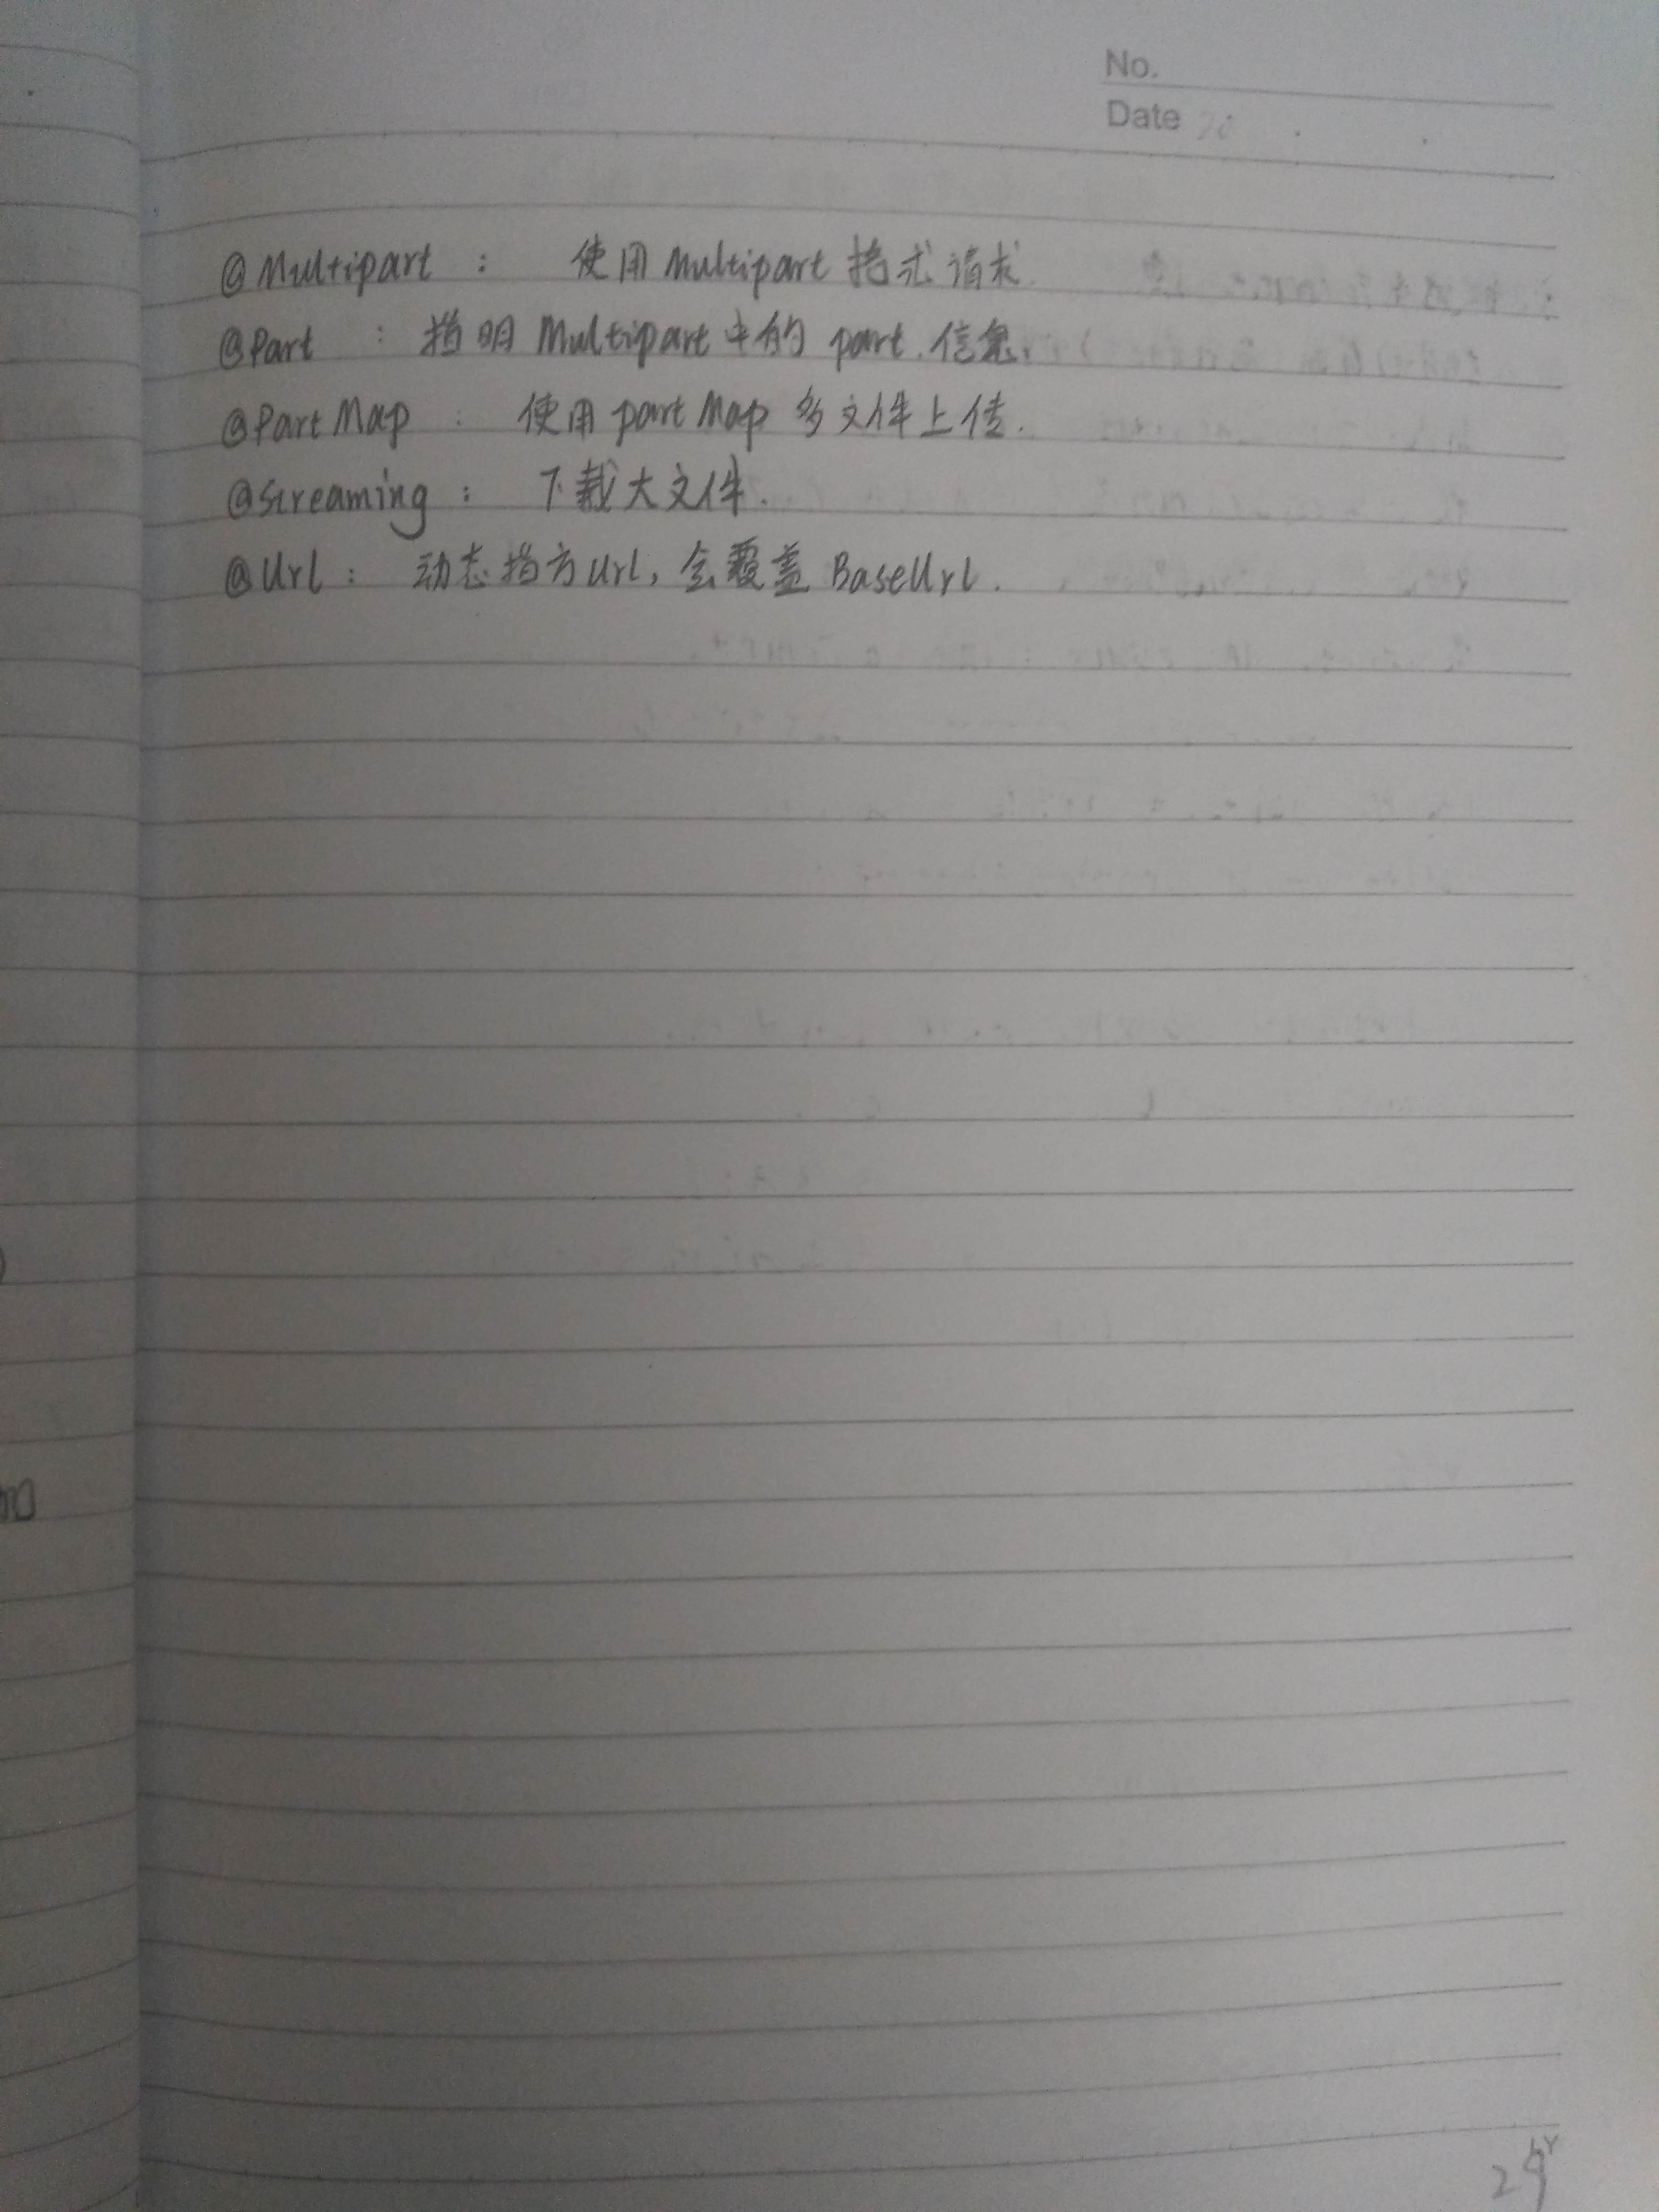 No.
Date 20 . .
@Multipart : 使用 Multipart 格式请求.
@Part : 指明 Multipart 中的 part 信息,
@PartMap : 使用 partMap 多文件上传.
@Streaming : 下载大文件.
@Url : 动态指方 Url, 会覆盖 BaseUrl.